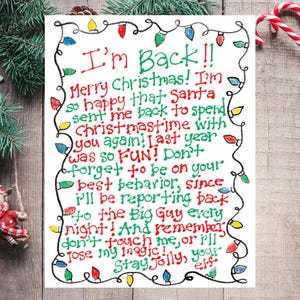 I'm Back!!
Merry Christmas! I'm
so happy that Santa
sent me back to spend
Christmastime with
you again! Last year
was so FUN! Don't
forget to be on your
best behavior, since
i'll be reporting back
to the Big Guy every
night! And remember
don't touch me, or i'll
lose my magic!
Stay Jolly, your
elf